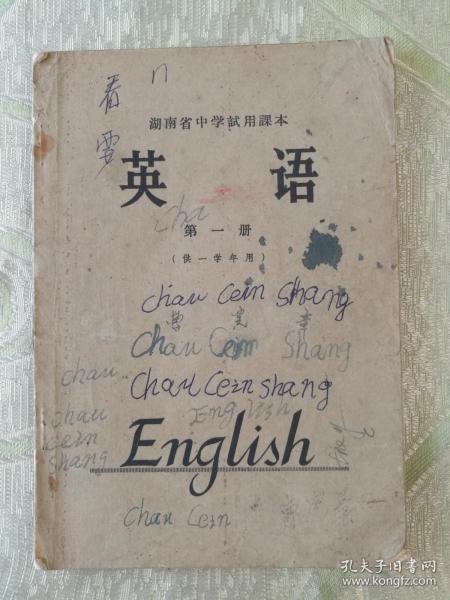 看 n
雪
湖南省中学試用課本
英 语
cha
第一册
(供一学年用)
chau cein shang
曹 宪 章
Chau Cein Shang
chau
Chau cein shang
chau
English
cein
shang
English
chau cein
孔夫子旧书网
www.kongfz.com